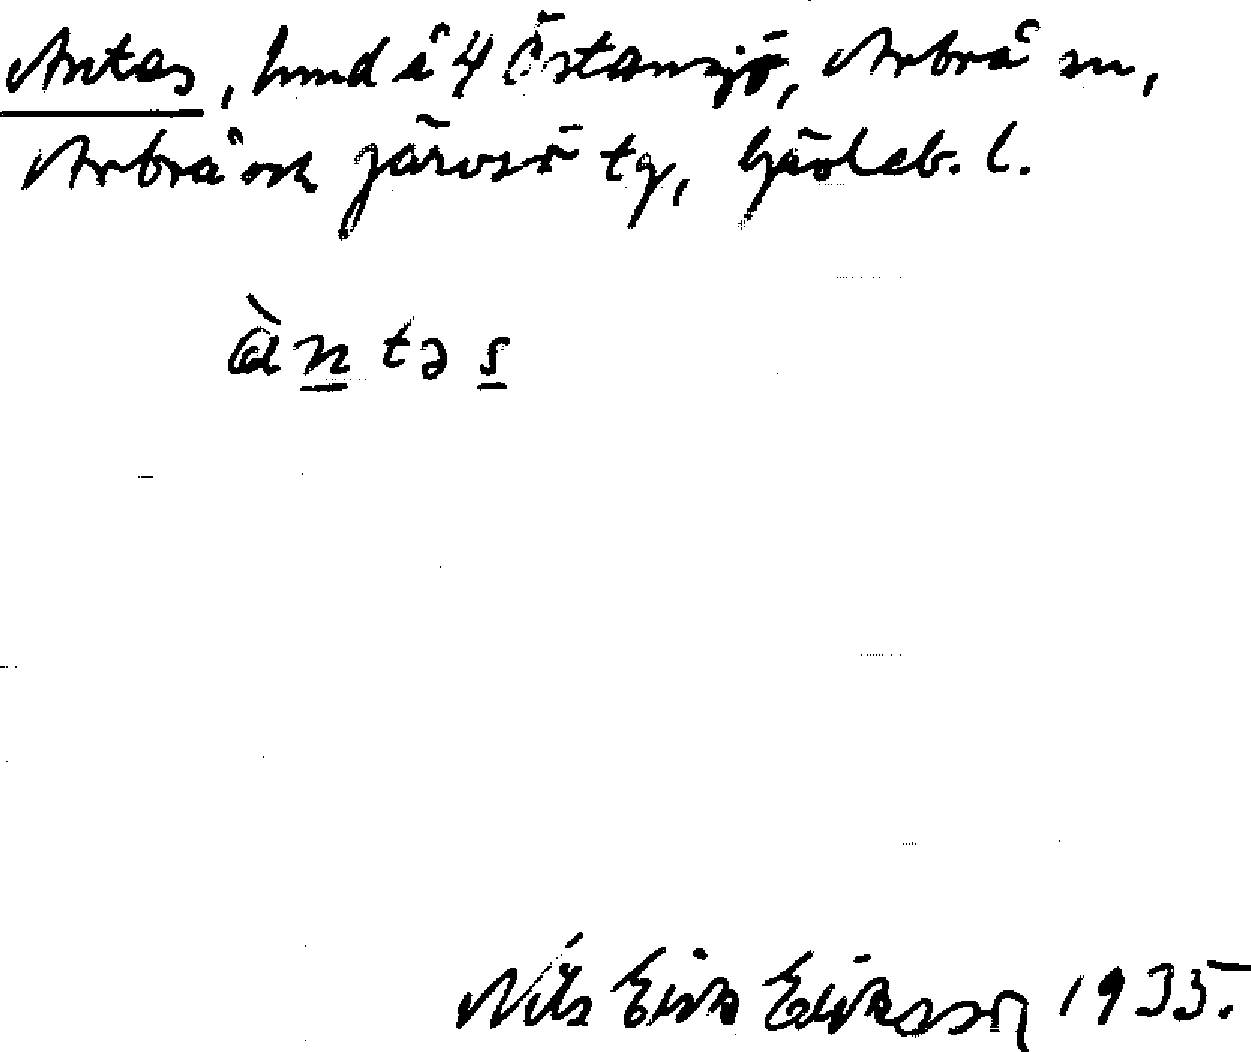 Antas, hmd å 4 Östansjö, Arbrå sn,
Arbrå och Järvsö tg, Gävleb. l.
àn təs
Nils Erik Eriksson 1935.